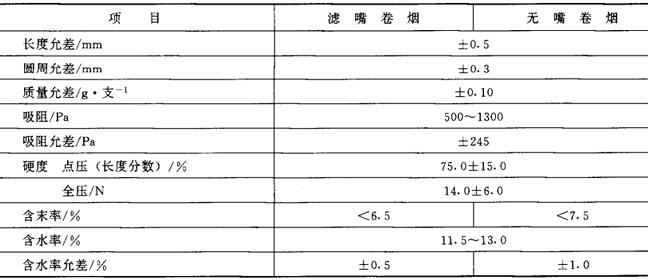 项 目 滤 嘴 卷 烟 无 嘴 卷 烟
长度允差/mm ±0.5
圆周允差/mm ±0.3
质量允差/g·支⁻¹ ±0.10
吸阻/Pa 500～1300
吸阻允差/Pa ±245
硬度 点压（长度分数）/% 75.0±15.0
全压/N 14.0±6.0
含末率/% <6.5 <7.5
含水率/% 11.5～13.0
含水率允差/% ±0.5 ±1.0